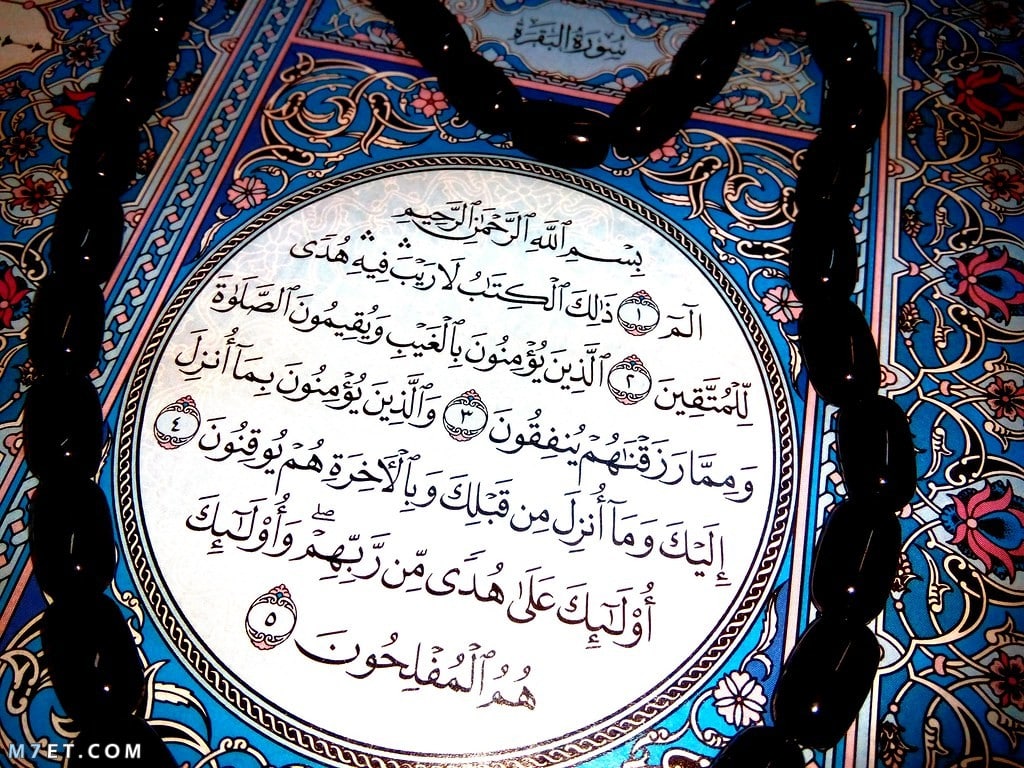 سُورَةُ البَقَرَةِ
بِسْمِ ٱللَّهِ ٱلرَّحْمَٰنِ ٱلرَّحِيمِ
الٓمٓ ١ ذَٰلِكَ ٱلْكِتَٰبُ لَا رَيْبَ ۛ فِيهِ ۛ هُدًى
لِّلْمُتَّقِينَ ٢ ٱلَّذِينَ يُؤْمِنُونَ بِٱلْغَيْبِ وَيُقِيمُونَ ٱلصَّلَوٰةَ
وَمِمَّا رَزَقْنَٰهُمْ يُنفِقُونَ ٣ وَٱلَّذِينَ يُؤْمِنُونَ بِمَآ أُنزِلَ
إِلَيْكَ وَمَآ أُنزِلَ مِن قَبْلِكَ وَبِٱلْءَاخِرَةِ هُمْ يُوقِنُونَ ٤
أُو۟لَٰٓئِكَ عَلَىٰ هُدًى مِّن رَّبِّهِمْ ۖ وَأُو۟لَٰٓئِكَ
هُمُ ٱلْمُفْلِحُونَ ٥
M7ET.COM